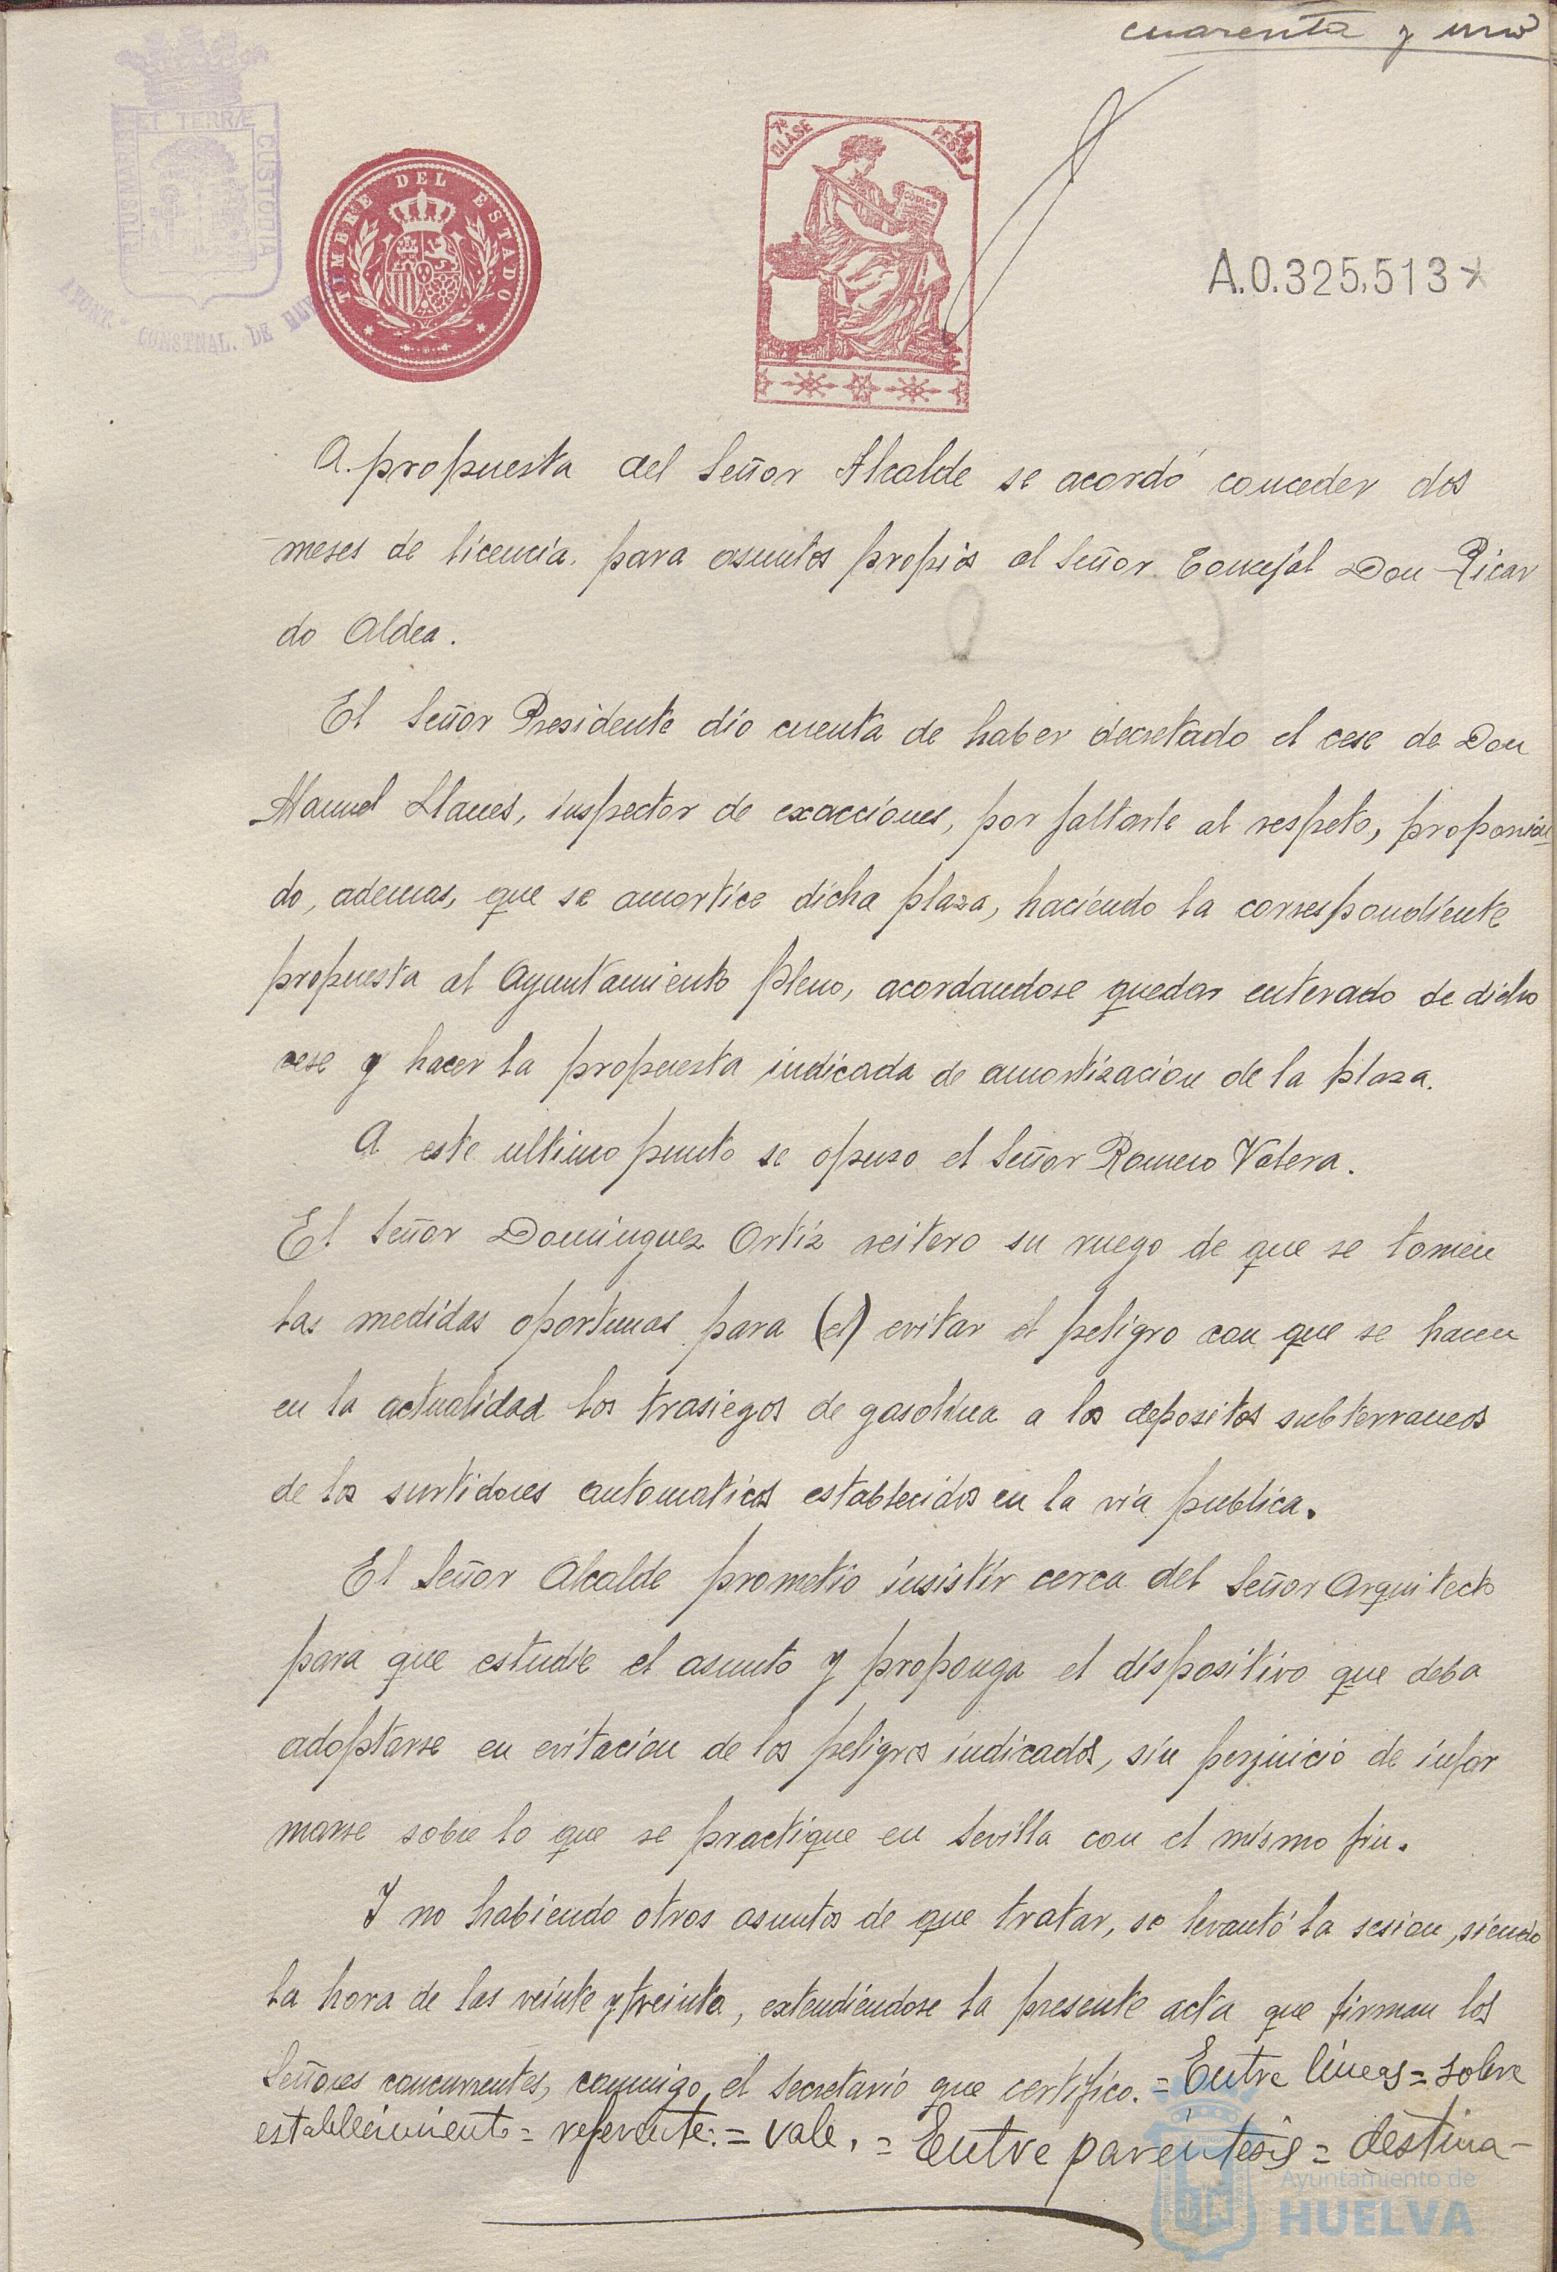 cuarenta y uno
ET TERRÆ
CUSTODIA
TIMBRE DEL ESTADO
7ª CLASE
PESETAS
CODIGO
A.0.325.513*
CONSTNAL. DE
A propuesta del Señor Alcalde se acordó conceder dos
meses de licencia para asuntos propios al Señor Concejal Don Ricar
do Aldea.
El Señor Presidente dio cuenta de haber decretado el cese de Don
Manuel Llanes, inspector de exacciones, por faltarle al respeto, proponien-
do, ademas, que se amortice dicha plaza, haciendo la correspondiente
propuesta al Ayuntamiento Pleno, acordandose quedar enterado de dicho
cese y hacer la propuesta indicada de amortizacion de la plaza.
A este ultimo punto se opuso el Señor Romero Valera.
El Señor Dominguez Ortiz reitero su ruego de que se tomen
las medidas oportunas para (el) evitar el peligro con que se hacen
en la actualidad los trasiegos de gasolina a los depositos subterraneos
de los surtidores automaticos establecidos en la via publica.
El Señor Alcalde prometio insistir cerca del Señor Arquitecto
para que estudie el asunto y proponga el dispositivo que deba
adoptarse en evitacion de los peligros indicados, sin perjuicio de infor
marse sobre lo que se practique en Sevilla con el mismo fin.
Y no habiendo otros asuntos de que tratar, se levantó la sesion, siendo
la hora de las veinte y treinta, extendiendose la presente acta que firman los
Señores concurrentes, conmigo, el Secretario que certifico. = Entre líneas = sobre
establecimiento = referente: = vale. = Entre parentesis = destina-
Ayuntamiento de
HUELVA